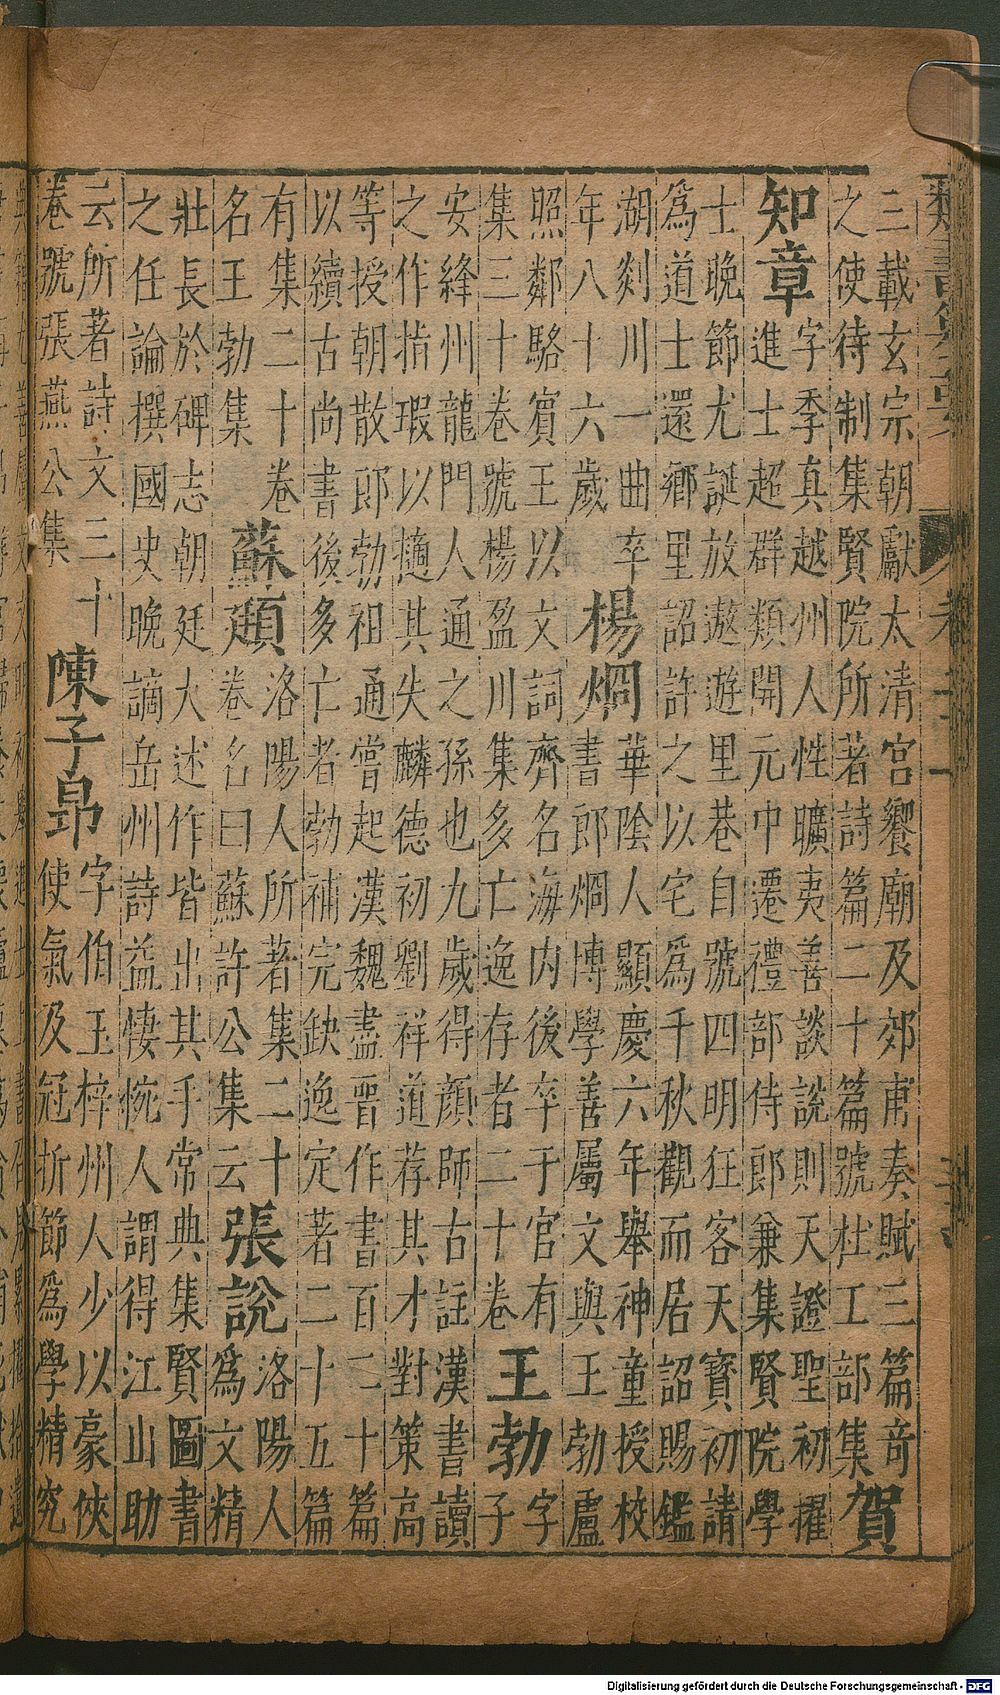 三載玄宗朝獻太清宮饗廟及郊甫奏賦三篇奇
之使待制集賢院所著詩篇二十篇號杜工部集
賀
知章
字季真越州人性曠夷善談說則天證聖初擢
進士超群類開元中遷禮部侍郎兼集賢院學
士晚節尤誕放遨遊里巷自號四明狂客天寶初請
為道士還鄉里詔許之以宅為千秋觀而居詔賜鑑
湖剡川一曲卒
年八十六歲
楊烱
華陰人顯慶六年舉神童授校
書郎烱博學善屬文與王勃盧
照鄰駱賓王以文詞齊名海内後卒于官有
集三十卷號楊盈川集多亡逸存者二十卷
王勃
字
子
安絳州龍門人通之孫也九歲得顏師古註漢書讀
之作指瑕以擿其失麟德初劉祥道荐其才對策高
等授朝散郎勃祖通嘗起漢魏盡晉作書百二十篇
以續古尚書後多亡者勃補完缺逸定著二十五篇
有集二十卷
名王勃集
蘇頲
洛陽人所著集二十
卷名曰蘇許公集云
張說
洛陽人
為文精
壯長於碑志朝廷大述作皆出其手常典集賢圖書
之任論撰國史晚謫岳州詩益悽惋人謂得江山助
云所著詩文三十
卷號張燕公集
陳子昂
字伯玉梓州人少以豪俠
使氣及冠折節為學精究
Digitalisierung gefördert durch die Deutsche Forschungsgemeinschaft - DFG